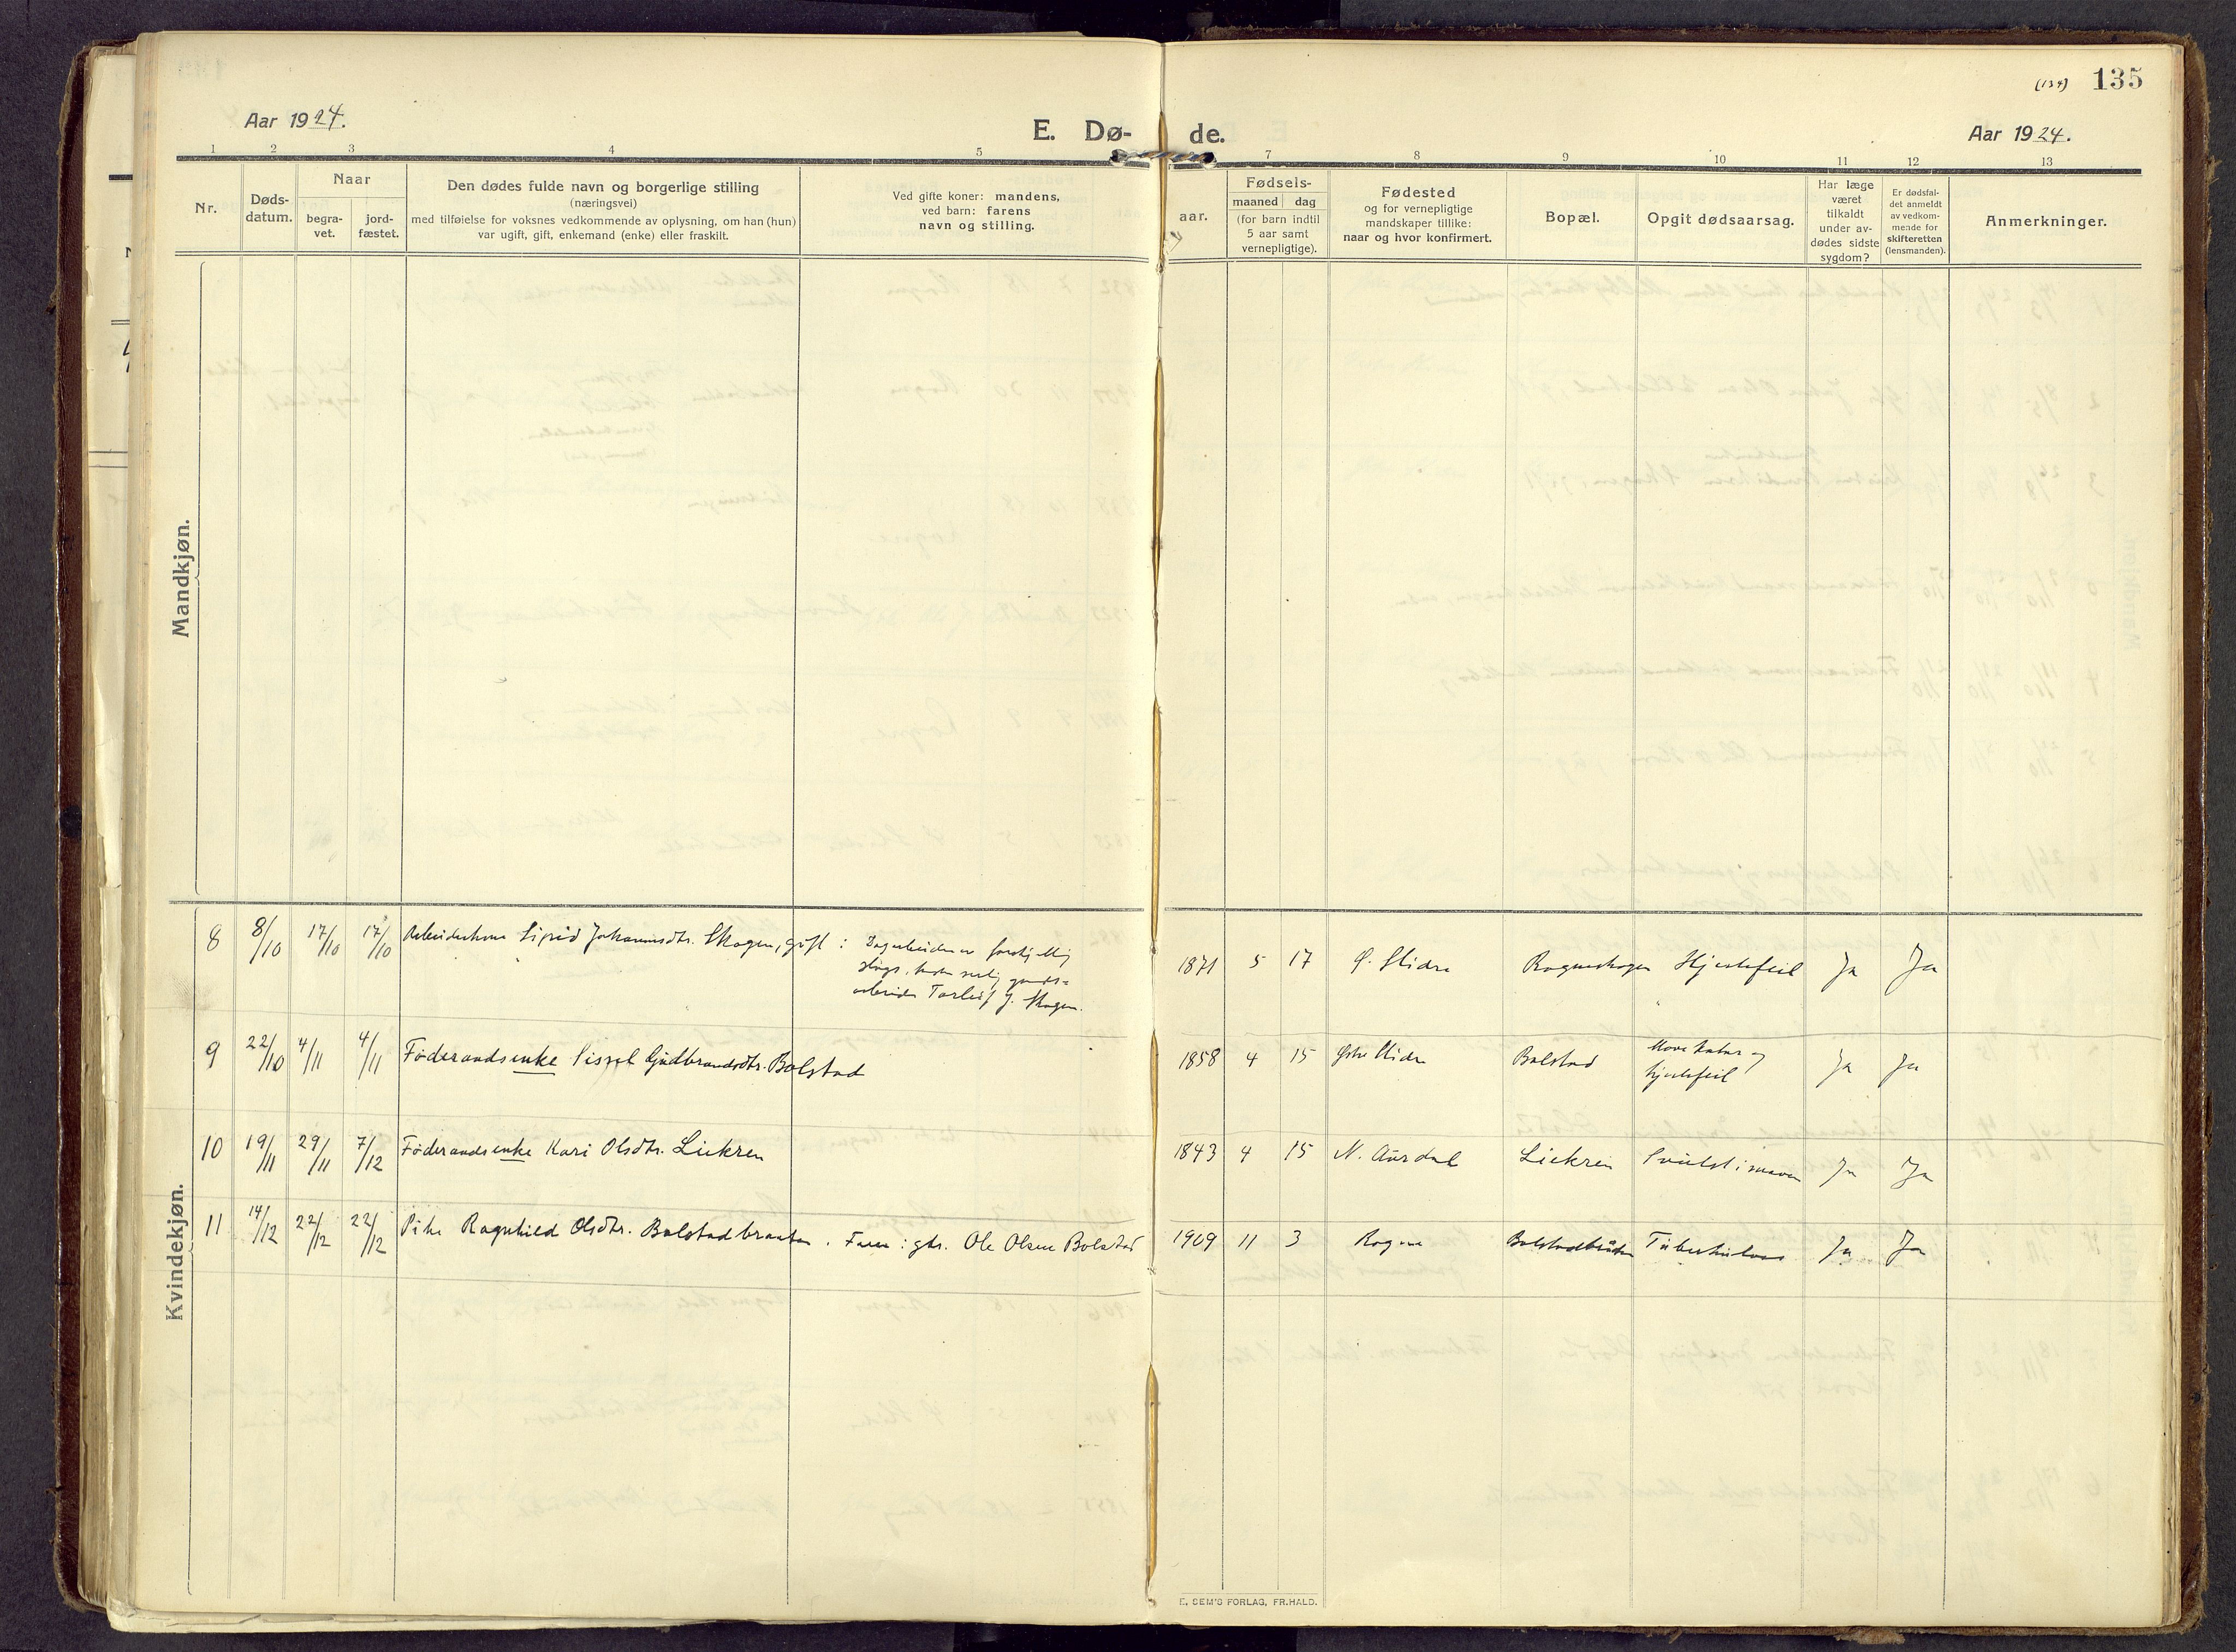 (134) 135
Aar 1924.
E. Dø- de.
Aar 1924.
1 2 3 4 5 7 8 9 10 11 12 13
Nr.
Døds-
datum.
Naar
begra-
vet.
jord-
fæstet.
Den dødes fulde navn og borgerlige stilling
(næringsvei)
med tilføielse for voksnes vedkommende av oplysning, om han (hun)
var ugift, gift, enkemand (enke) eller fraskilt.
Ved gifte koner: mandens,
ved barn: farens
navn og stilling.
aar.
Fødsels-
maaned dag
(for barn indtil
5 aar samt
vernepligtige).
Fødested
og for vernepligtige
mandskaper tillike:
naar og hvor konfirmert.
Bopæl.
Opgit dødsaarsag.
Har læge
været
tilkaldt
under av-
dødes sidste
sygdom?
Er dødsfal-
det anmeldt
av vedkom-
mende for
skifteretten
(lensmanden).
Anmerkninger.
Mandkjøn.
Kvindekjøn.
8 8/10 17/10 17/10 Arbeiderkone Sigrid Johannisdtr. Skogen, gift : Dagarbeider av forskjellig
slags,
arbeider Torleif J. Skogen.
1871 5 17 Ø. Slidre Rogneskogen Hjertefeil Ja Ja
9 22/10 4/11 4/11 Føderaadsenke Sissel Gudbrandsdtr. Bolstad
1858 4 15 Østre Slidre Bolstad Mavekatar og
hjertefeil Ja Ja
10 19/11 29/11 7/12 Føderaadsenke Kari Olsdtr. Liekren
1843 4 15 N. Aurdal Liekren Svulst i maven Ja Ja
11 14/12 22/12 22/12 Pike Ragnhild Olsdtr. Bolstadbraaten. Faren: gbr. Ole Olsen Bolstad
1909 11 3 Rogne Bolstadbråten Tuberkulose Ja Ja
E. SEM'S FORLAG, FR.HALD.